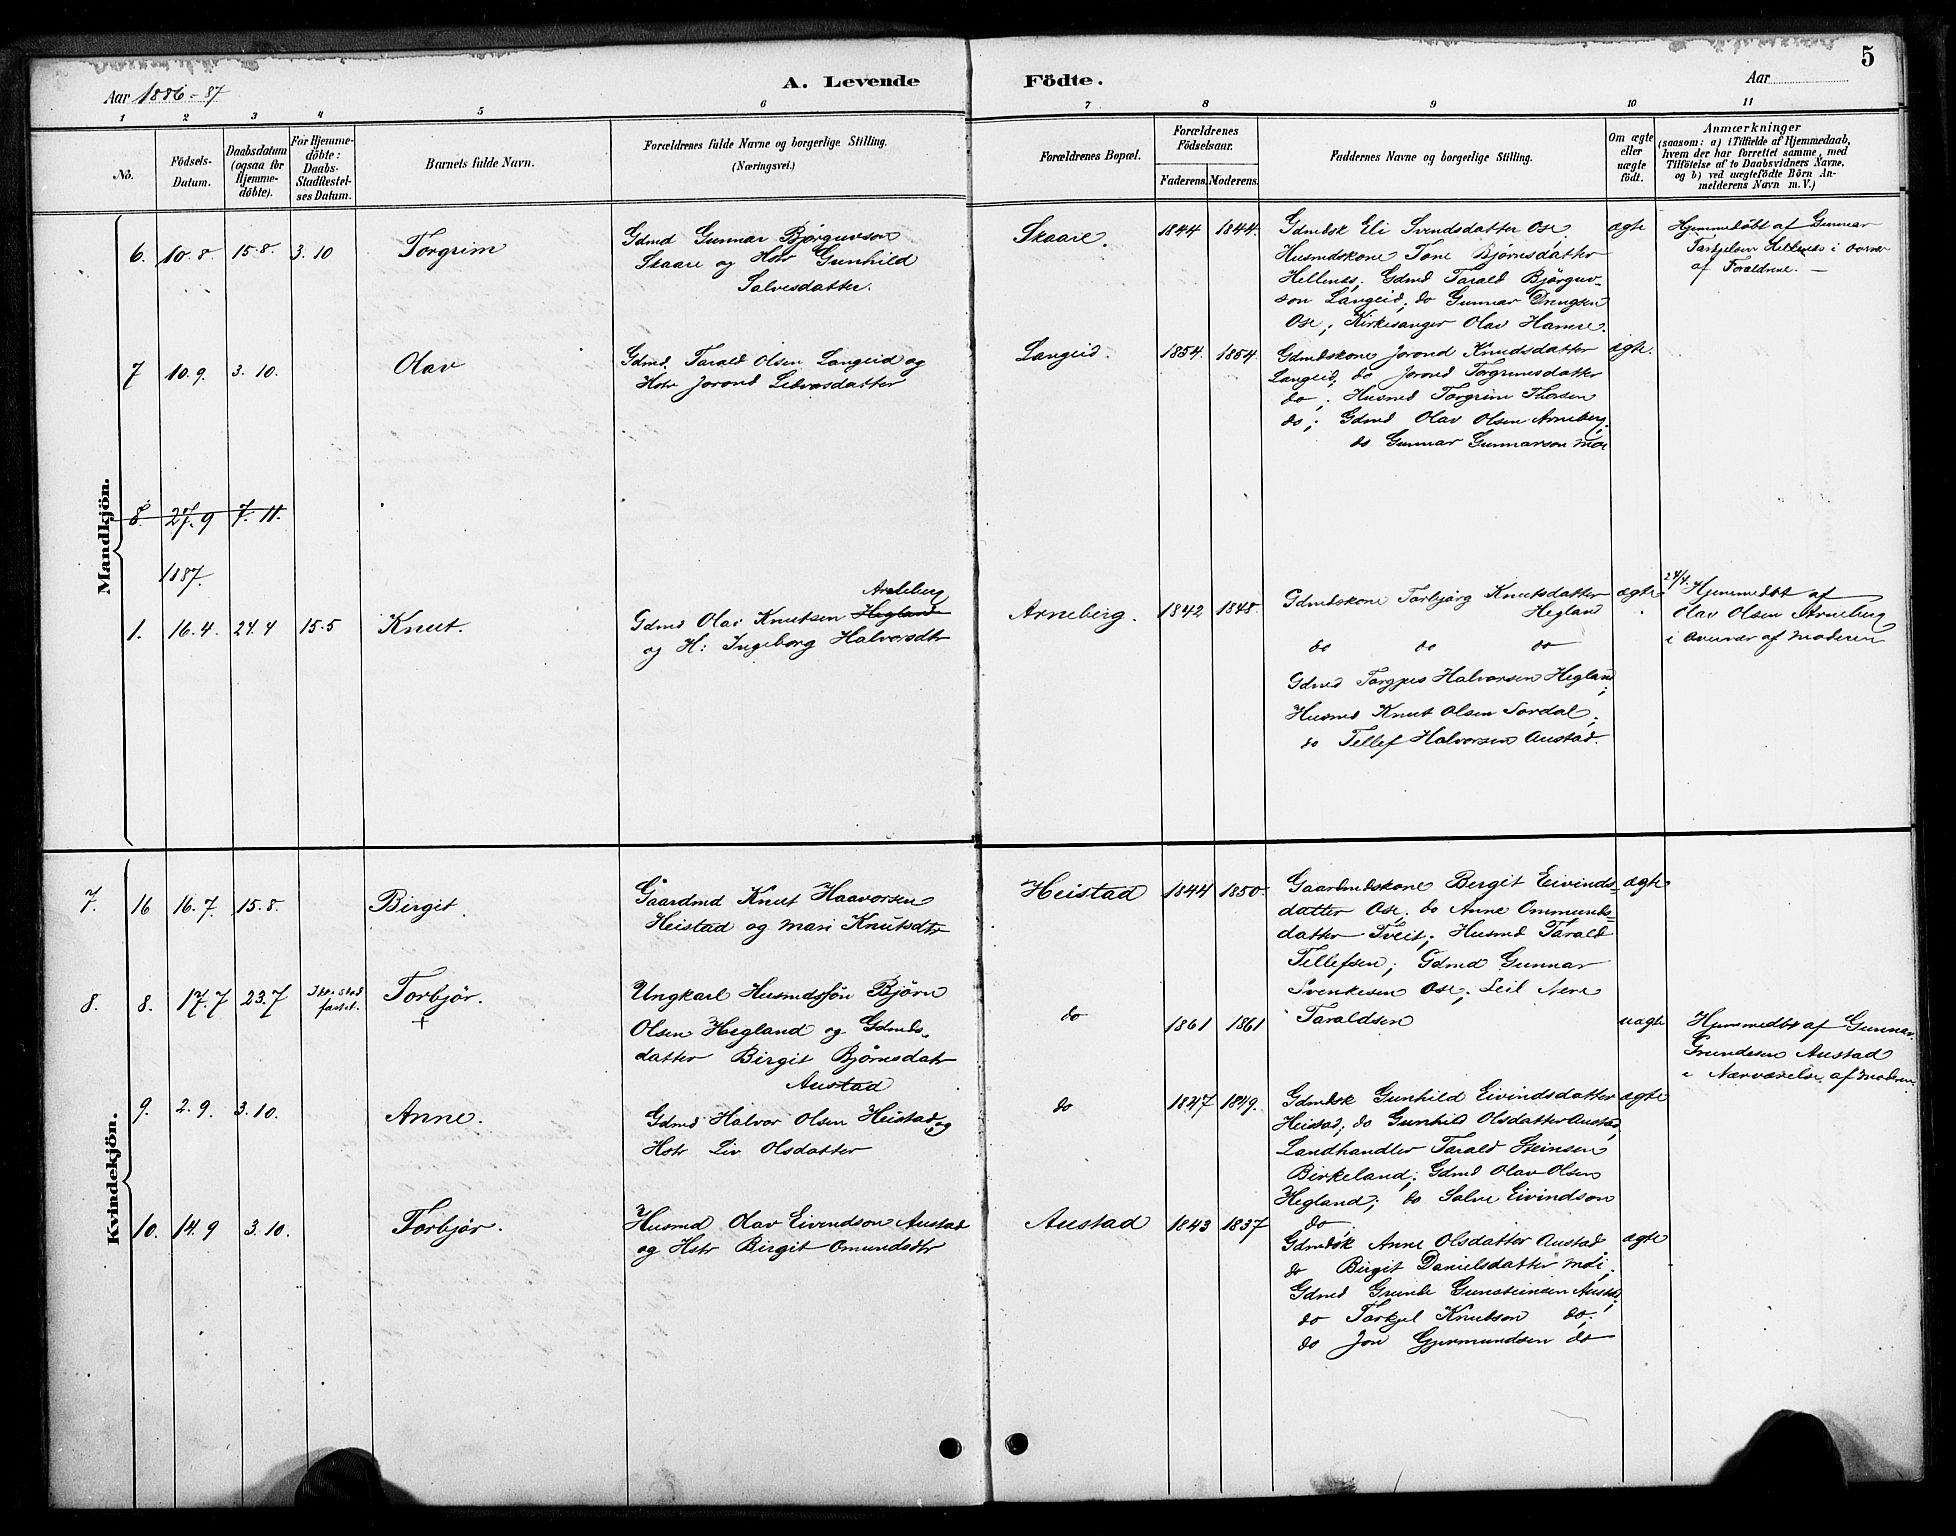 5
Aar 1886-87
A. Levende Födte.
Aar
1 2 3 4 5 6 7 8 9 10 11
No.
Födsels-Datum.
Daabsdatum (ogsaa for Hjemme-döbte).
For Hjemme-döbte: Daabs-Stadfæstel-ses Datum.
Barnets fulde Navn.
Forældrenes fulde Navne og borgerlige Stilling.
(Næringsvei.)
Forældrenes Bopæl.
Forældrenes Födselsaar.
Faderens. Moderens.
Faddernes Navne og borgerlige Stilling.
Om ægte eller uægte födt.
Anmærkninger
(saasom: a) i Tilfælde af Hjemmedaab,
hvem der har forrettet samme, med
Tilföielse af to Daabsvidners Navne,
og b) ved uægtefödte Börn An-
melderens Navn m. V.)
Mandkjön.
6. 10.8 15.8. 3.10 Torgrim
Gdmd Gunnar Bjørguvson
Skaare og Hstr Gunhild
Salvesdatter.
Skaare. 1844 1844.
Gdmdsk Eli Svendsdatter Ose,
Husmdskone Tone Bjørnsdatter
Hellenes; Gdmd Tarald Bjørguv-
son Langeid; do Gunnar Drengsen
Ose; Kirkesanger Olav Hamre.
ægte
Hjemmedöbt af Gunnar
Tarkjelsen Hellenes i Overvær
af Forældrene. —
7 10.9. 3.10. Olav
Gdmd. Tarald Olsen Langeid og
Hstr Jorond Leivsdatter
Langeid. 1854. 1854.
Gdmdskone Jorond Knudsdatter
Langeid; do Jorond Torgrimsdatter
do; Husmd Torgrim Thorsen
do; Gdmd Olav Olsen Arneberg;
do Gunnar Gunnarson Moe
ægte.
8. 27.9 7.11.
1887.
1. 16.4. 24.4 15.5 Knut.
Arneberg
Gdmd Olav Knutsen Hegland
og H: Ingeborg Halvorsdtr
Arneberg. 1842 1848.
Gdmdskone Torbjørg Knutsdatter
Hegland
do do do
Gdmd Torgjus Halvorsen Hegland;
Husmd Knut Olsen Sordal;
do Tellef Halvorsen Austad.
ægte
24/4. Hjemmedbt af
Olav Olsen Arneberg
i Overvær af Moderen
Kvindekjön.
7. 16 16.7. 15.8. Birgit.
Gaardmd Knut Haavorsen
Heistad og Mari Knutsdtr
Heistad 1844 1850.
Gaardmdskone Birgit Eivinds-
datter Ose; do Anne Ommunds-
datter Tveit; Husmd Tarald
Tellefsen; Gdmd Gunnar
Svenkesen Ose;
Taraldsen
ægte
8. 8. 17.7 23.7 Torbjør.
+
Ungkarl Husmdssøn Bjørn
Olsen Hegland og Gdmds-
datter Birgit Bjørnsdatr
Austad
do 1861 1861
uægte
Hjemmedbt af Gunnar
Grundesen Austad
i Nærværelse af Moderen
9. 2.9. 3.10. Anne.
Gdmd Halvor Olsen Heistad og
Hstr Liv Olsdatter
do 1847 1849.
Gdmdsk Gunhild Eivindsdatter
Heistad; do Gunhild Olsdatter Austad,
Landhandler Tarald Steinsen
Birkeland; Gdmd Olav Olsen
Hegland; do Salve Eivindson
do.
ægte
10. 14.9 3.10. Torbjør.
Husmd Olav Eivendson Austad
og Hstr Birgit Omundsdtr
Austad 1843 1837
Gdmdsk Anne Olsdatter Austad
do Birgit Danielsdatter Moi;
Gdmd Grunde Gunsteinsen Austad;
do Tarkjel Knutson do;
do Jon Gjermundsen do
ægte